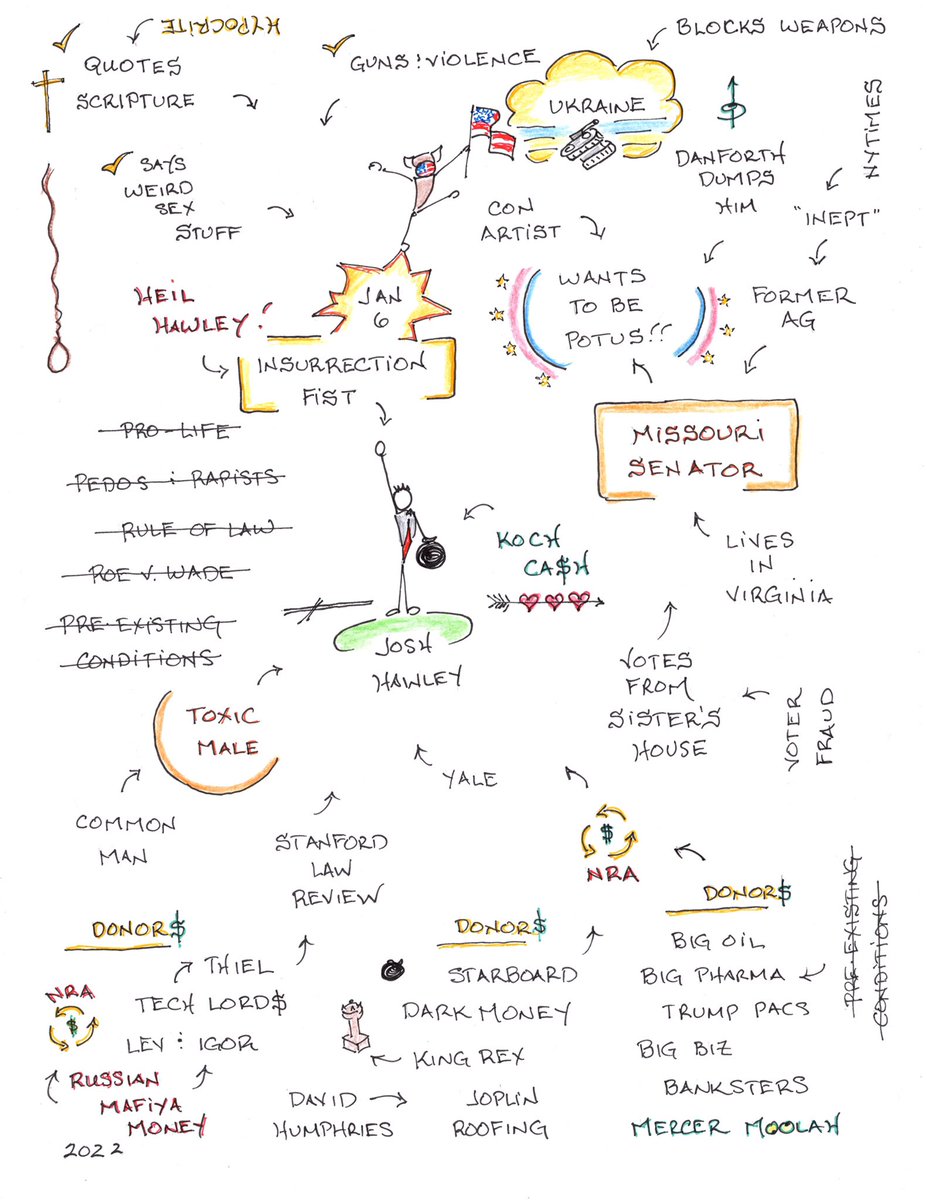 HYPOCRITE
QUOTES
SCRIPTURE
GUNS & VIOLENCE
BLOCKS WEAPONS
UKRAINE
$
NYTIMES
DANFORTH
DUMPS
HIM
"INEPT"
FORMER
AG
SAYS
WEIRD
SEX
STUFF
CON
ARTIST
WANTS
TO BE
POTUS!!
HEIL
HAWLEY!
JAN
6
INSURRECTION
FIST
MISSOURI
SENATOR
PRO-LIFE
PEDOS & RAPISTS
RULE OF LAW
ROE V. WADE
PRE-EXISTING
CONDITIONS
KOCH
CA$H
LIVES
IN
VIRGINIA
JOSH
HAWLEY
VOTES
FROM
SISTER'S
HOUSE
VOTER
FRAUD
TOXIC
MALE
YALE
COMMON
MAN
STANFORD
LAW
REVIEW
$
NRA
DONOR$
THIEL
TECH LORD$
LEV & IGOR
NRA
$
RUSSIAN
MAFIYA
MONEY
2022
DONOR$
STARBOARD
DARK MONEY
KING REX
DAVID
HUMPHRIES
JOPLIN
ROOFING
DONOR$
BIG OIL
BIG PHARMA
TRUMP PACS
BIG BIZ
BANKSTERS
MERCER MOOLAH
PRE-EXISTING
CONDITIONS